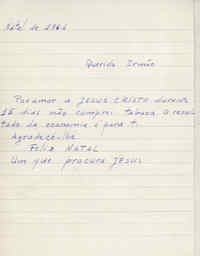 Natal de 1961
Querido Irmão
Por amor a JESUS CRISTO durante
15 dias não comprei tabaco o resul
tado da economia é para ti.
Agradece-lhe
Feliz NATAL
Um que procura JESUS